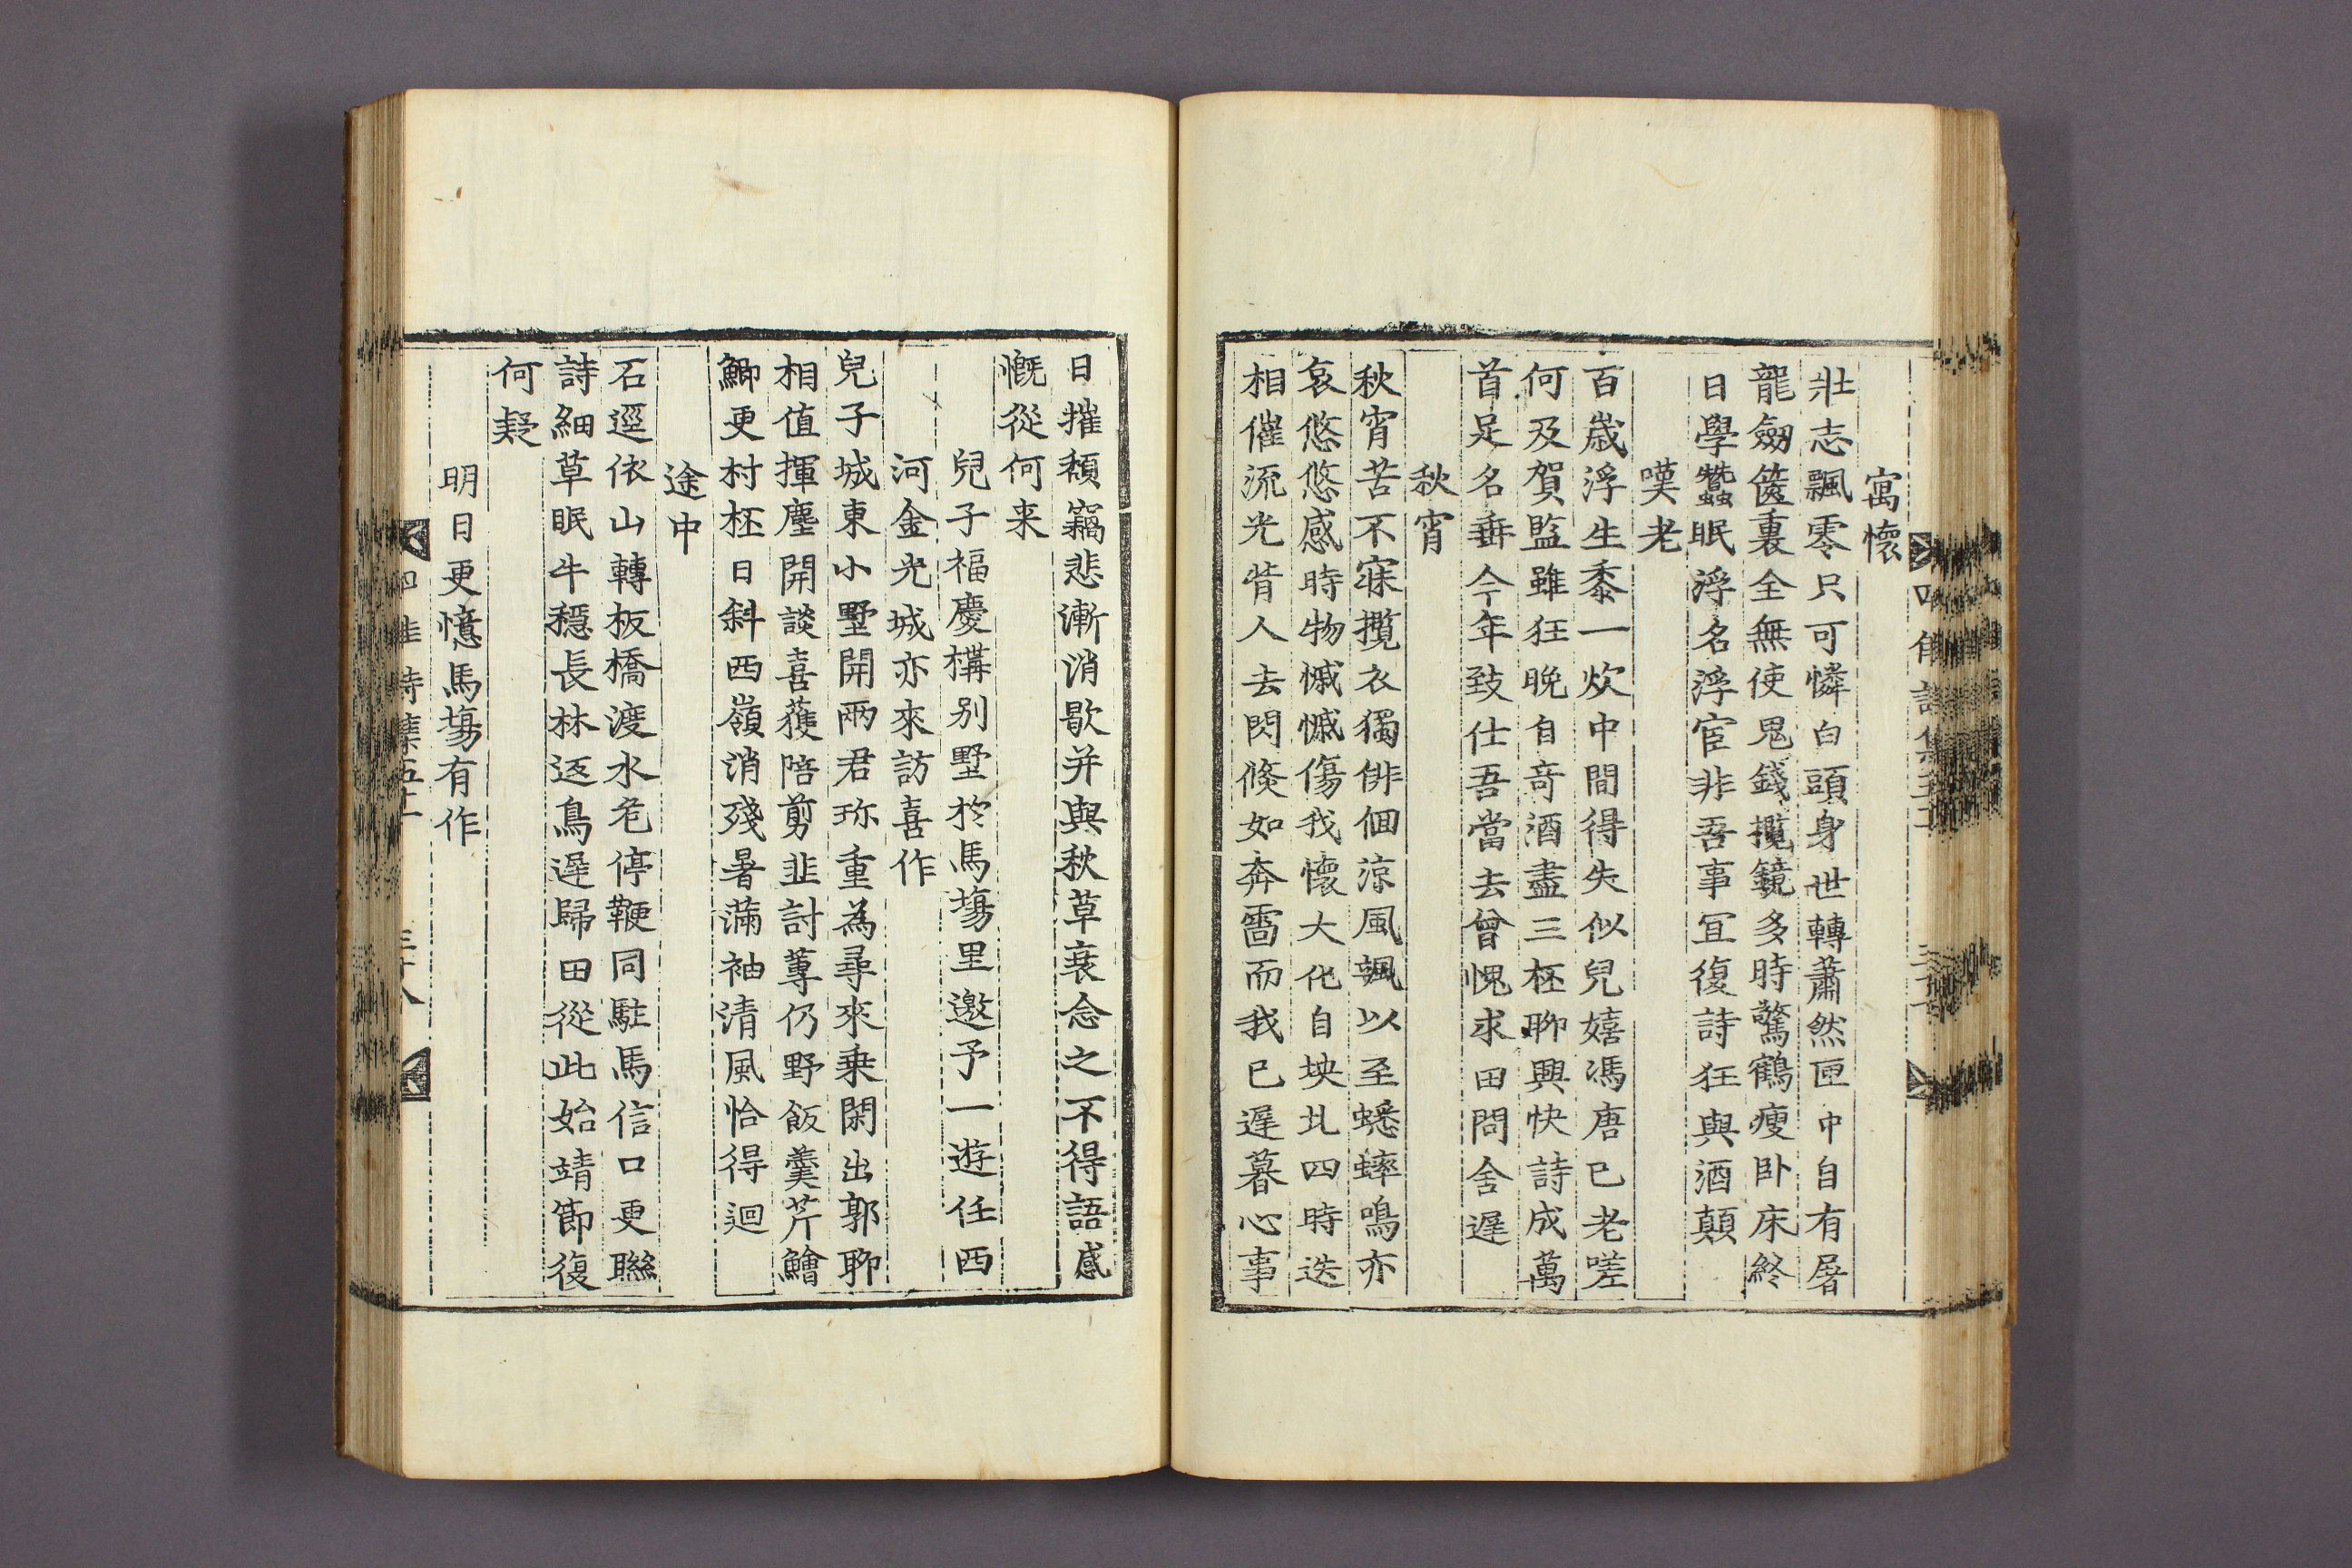 寓懷
壯志飄零只可憐白頭身世轉蕭然匣中自有屠
龍劒篋裏全無使鬼錢攬鏡多時驚鶴瘦卧床終
日學蠶眠浮名浮宦非吾事冝復詩狂與酒顛
嘆老
百歲浮生黍一炊中間得失似兒嬉馮唐已老嗟
何及賀監雖狂晚自竒酒盡三杯聊興快詩成萬
首足名垂今年致仕吾當去曾愧求田問舍遲
秋宵
秋宵苦不寐攬衣獨徘佪涼風颯以至蟋蟀鳴亦
哀悠悠感時物慽慽傷我懷大化自坱圠四時迭
相催流光背人去閃倐如奔雷而我已遲暮心事
日摧頹竊悲漸消歇并與秋草衰念之不得語感
慨從何来
兒子福慶構别墅於馬塲里邀予一遊任西
河金光城亦來訪喜作
兒子城東小墅開兩君珎重為尋來乗閑出郭聊
相值揮麈開談喜獲陪剪韭討蓴仍野飯羹芹鱠
鯽更村杯日斜西嶺消殘暑滿袖清風恰得迴
途中
石逕依山轉板橋渡水危停鞭同駐馬信口更聯
詩細草眠牛穩長林返鳥遲歸田從此始靖節復
何疑
明日更憶馬塲有作
四佳詩集五十
三十八